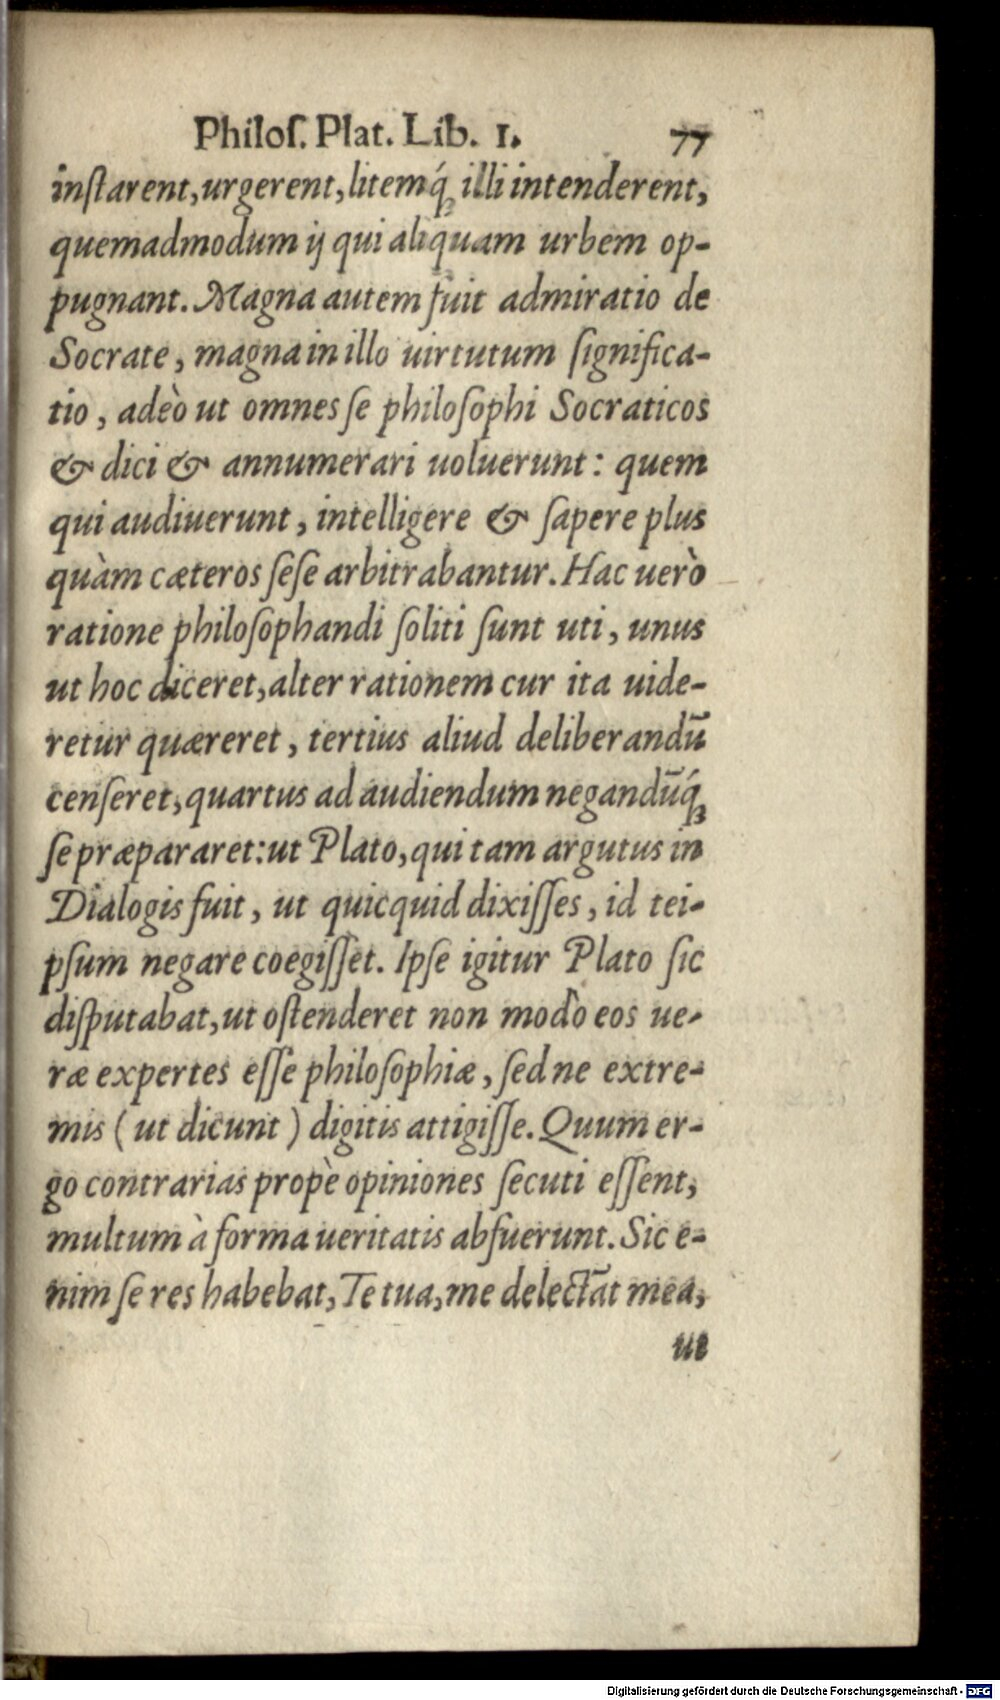 Philoſ. Plat. Lib. 1. 77
inſtarent, urgerent, litemq́ꝫ illi intenderent,
quemadmodum ij qui aliquam urbem op-
pugnant. Magna autem fuit admiratio de
Socrate, magna in illo uirtutum ſignifica-
tio, adeò ut omnes ſe philoſophi Socraticos
& dici & annumerari uoluerunt: quem
qui audiuerunt, intelligere & ſapere plus
quàm cæteros ſeſe arbitrabantur. Hac uerò
ratione philoſophandi ſoliti ſunt uti, unus
ut hoc diceret, alter rationem cur ita uide-
retur quæreret, tertius aliud deliberandū
cenſeret, quartus ad audiendum negandūq́ꝫ
ſe præpararet: ut Plato, qui tam argutus in
Dialogis fuit, ut quicquid dixiſſes, id tei-
pſum negare coegiſſet. Ipſe igitur Plato ſic
diſputabat, ut oſtenderet non modò eos ue-
ræ expertes eſſe philoſophiæ, ſed ne extre-
mis (ut dicunt) digitis attigiſſe. Quum er-
go contrarias propè opiniones ſecuti eſſent,
multum à forma ueritatis abfuerunt. Sic e-
nim ſe res habebat, Te tua, me delectāt mea,
ut
Digitalisierung gefördert durch die Deutsche Forschungsgemeinschaft - DFG